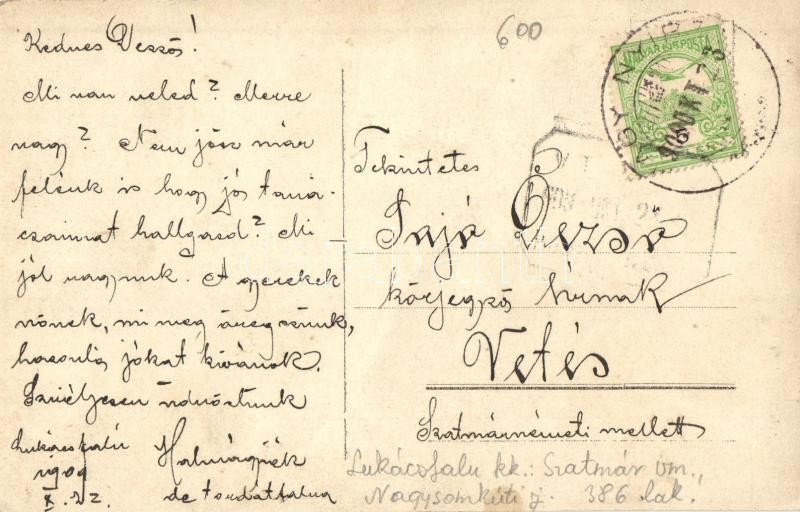 600
Kedves Dezső!
Mi van veled? Merre
vagy? Nem jösz már
felénk is hogy jó taná-
csaimat hallgasd? Mi
jól vagyunk. A gyerekek
nőnek, mi meg öregszünk,
hasonló jókat kívánok.
Szívélyesen üdvözlünk
Lukácsfalu
1909
X. 22.
MAGYAR KIR. POSTA
Tekintetes
Dezső
körjegyző úrnak
Vetés
Szatmárnémeti mellett
Lukácsfalu kk.: Szatmár vm.,
Nagysomkúti j. 386 lak.